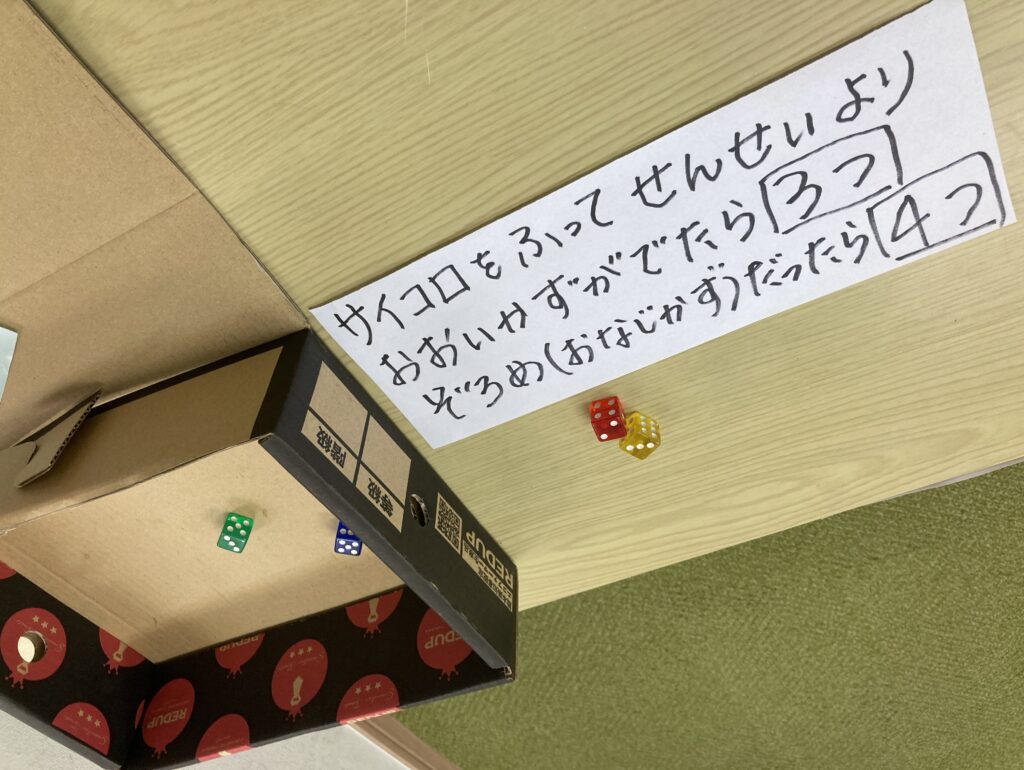 サイコロをふって せんせいより
おおいかずがでたら 3つ
ぞろめ(おなじかず)だったら 4つ
階級
等級
REDUP
REDUP
REDUP
REDUP